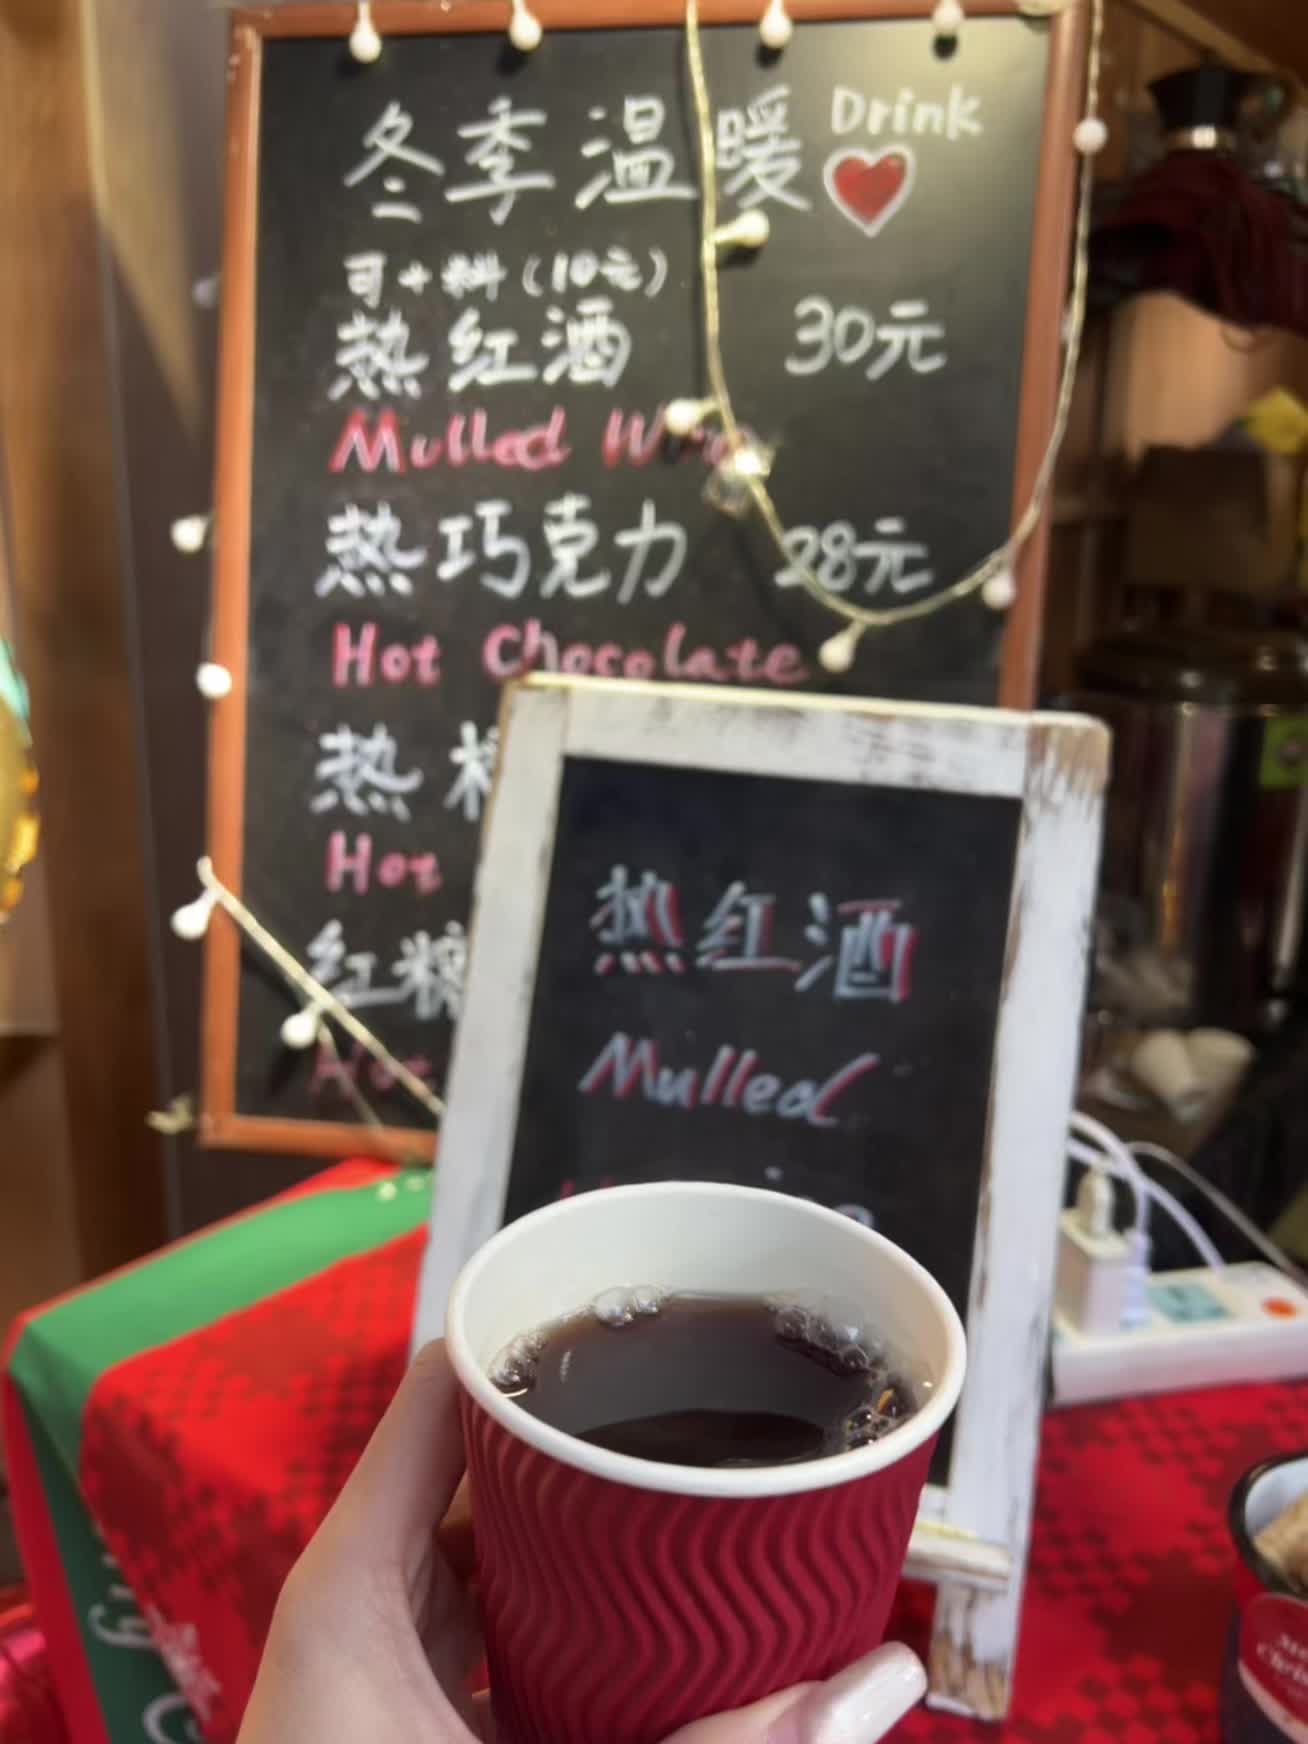 冬季温暖 Drink
可+料(10元)
热红酒 30元
Mulled
热巧克力 28元
Hot Chocolate
热
Hot
红糖
Hot
热红酒
Mulled